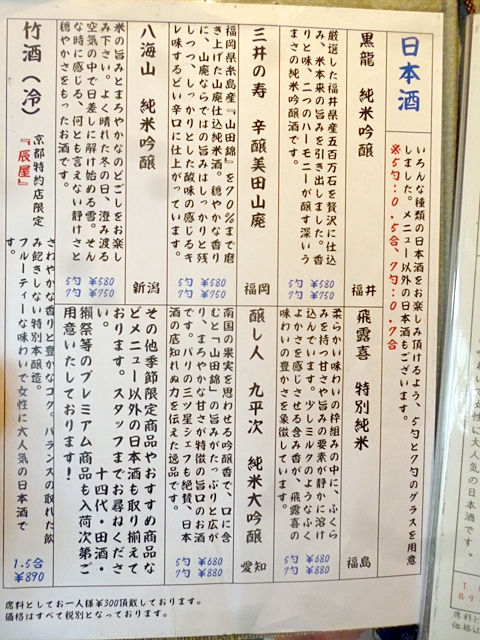 日本酒
いろんな種類の日本酒をお楽しみ頂けるよう、5勺と7勺のグラスを用意
しました。メニュー以外の日本酒もございます。
※5勺:0.5合、7勺:0.7合
黒龍 純米吟醸
福井
厳選した福井県産五百万石を贅沢に仕込
み、米本来の旨みを引き出しました。香
りと味、二つのハーモニーが醸す深いう
まさの純米吟醸酒です。
5勺 ¥580
7勺 ¥750
飛露喜 特別純米
福島
柔らかい味わいの枠組みの中に、ふくら
みを持つ甘さや旨みの要素が静かに溶け
込んでいます。少しミルクのようなふく
よかさを感じさせる含み香が、飛露喜の
味わいの豊かさを象徴しています。
5勺 ¥680
7勺 ¥880
三井の寿 辛醸美田山廃
福岡
福岡県糸島産『山田錦』を70%まで磨
き上げた山廃仕込純米酒。穏やかな香り
に、山廃ならではの旨みはしっかりと残
しつつ、しっかりとした酸味の感じるキ
レ味するどい辛口に仕上がっています。
5勺 ¥580
7勺 ¥750
醸し人 九平次 純米大吟醸
愛知
南国の果実を思わせる吟醸香で、口に含
むと「山田錦」の旨みがたっぷりと広が
り、まろやかな甘さが特徴の旨口のお酒
です。パリの三ツ星シェフも絶賛、日本
酒の底知れぬ力を伝えた逸品です。
5勺 ¥680
7勺 ¥880
八海山 純米吟醸
新潟
米の旨みとまろやかなのどごしをお楽し
み下さい。よく晴れた冬の日、澄み渡る
空気の中で日差しに解け始める雪。そん
な時に感じる、何とも言えない静けさと
穏やかさをもったお酒です。
5勺 ¥580
7勺 ¥750
その他季節限定商品やおすすめ商品な
どメニュー以外の日本酒も取り揃えて
おります。スタッフまでお尋ねくださ
い。
十四代・田酒・
獺祭等のプレミアム商品も入荷次第ご
用意いたしております!
竹酒(冷)
京都特約店限定
『辰屋』
さわやかな香りと豊かなコク。バランスの取れた飲
み飽きしない特別本醸造。
フルーティーな味わいで女性に大人気の日本酒で
す。
1.5合
¥890
席料としてお一人様¥300頂戴しております。
価格はすべて税別となっております。